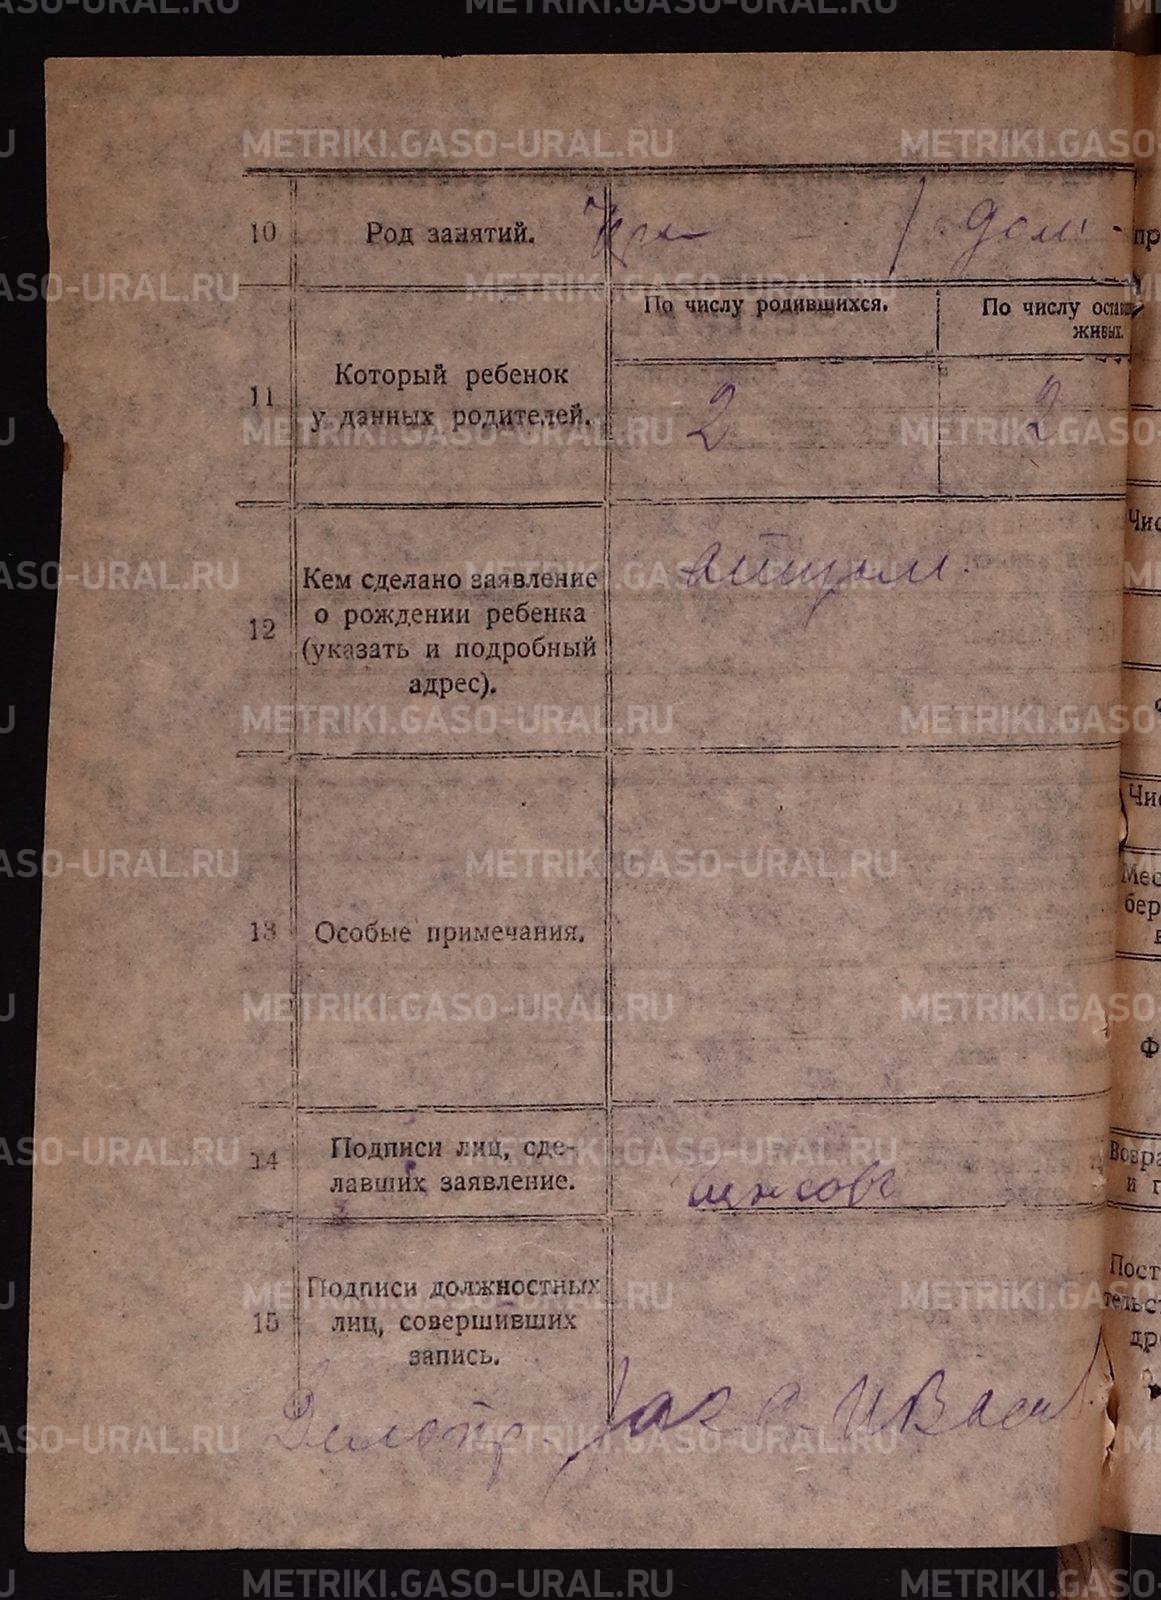 10 Род занятий. дом.
По числу родившихся. По числу остав
живых.
11 Который ребенок
у данных родителей.
2 2
12 Кем сделано заявление
о рождении ребенка
(указать и подробный
адрес).
13 Особые примечания.
14 Подписи лиц, сде-
лавших заявление.
15 Подписи должностных
лиц, совершивших
запись.
Делопр.
пр
Чис
Чис
Мес
бер
Ф
Возра
и г
Пост
тельст
др
METRIKI.GASO-URAL.RU